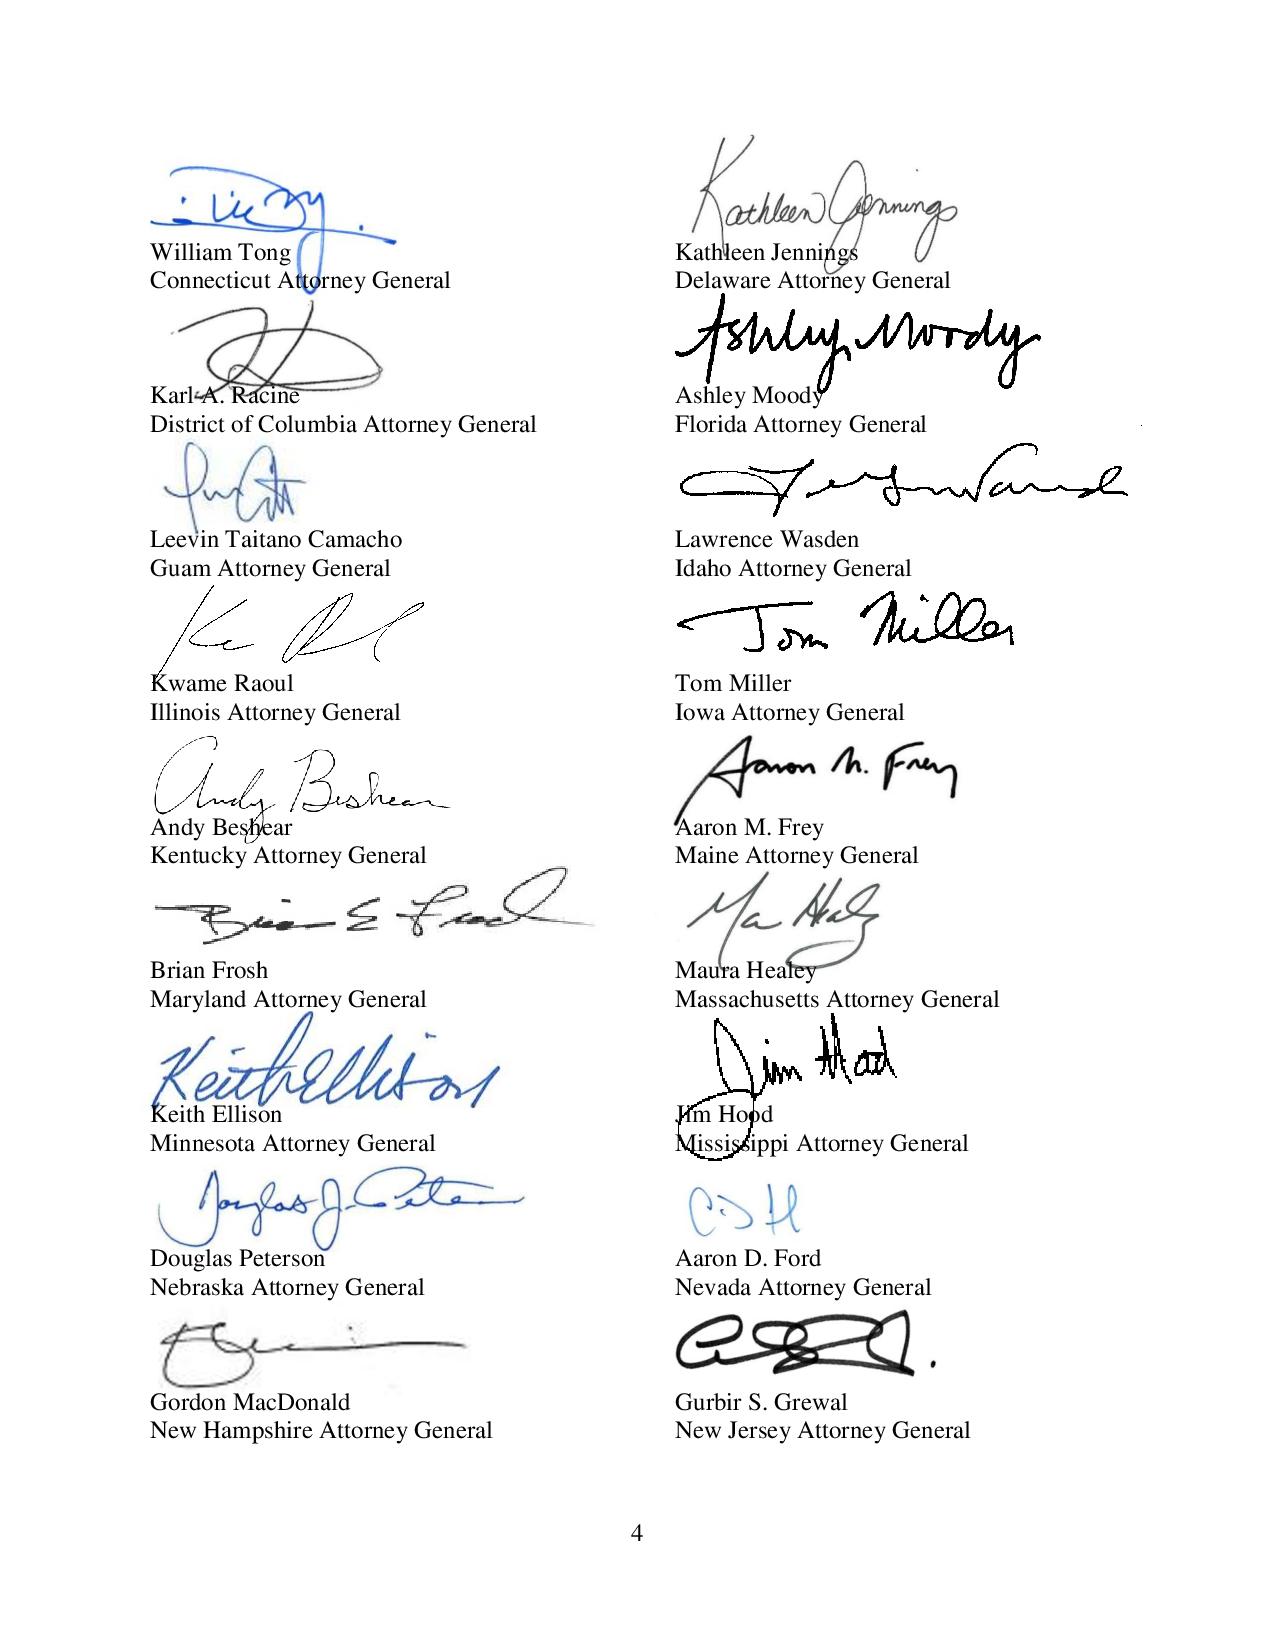 Kathleen Jennings
William Tong
Connecticut Attorney General
Kathleen Jennings
Delaware Attorney General
Ashley Moody
Karl A. Racine
District of Columbia Attorney General
Ashley Moody
Florida Attorney General
Leevin Taitano Camacho
Guam Attorney General
Lawrence Wasden
Idaho Attorney General
Tom Miller
Kwame Raoul
Illinois Attorney General
Tom Miller
Iowa Attorney General
Andy Beshear
Aaron M. Frey
Andy Beshear
Kentucky Attorney General
Aaron M. Frey
Maine Attorney General
Brian E Frosh
Brian Frosh
Maryland Attorney General
Maura Healey
Massachusetts Attorney General
Keith Ellison
Jim Hood
Keith Ellison
Minnesota Attorney General
Jim Hood
Mississippi Attorney General
Douglas J. Peterson
Douglas Peterson
Nebraska Attorney General
Aaron D. Ford
Nevada Attorney General
Gordon MacDonald
New Hampshire Attorney General
Gurbir S. Grewal
New Jersey Attorney General
4